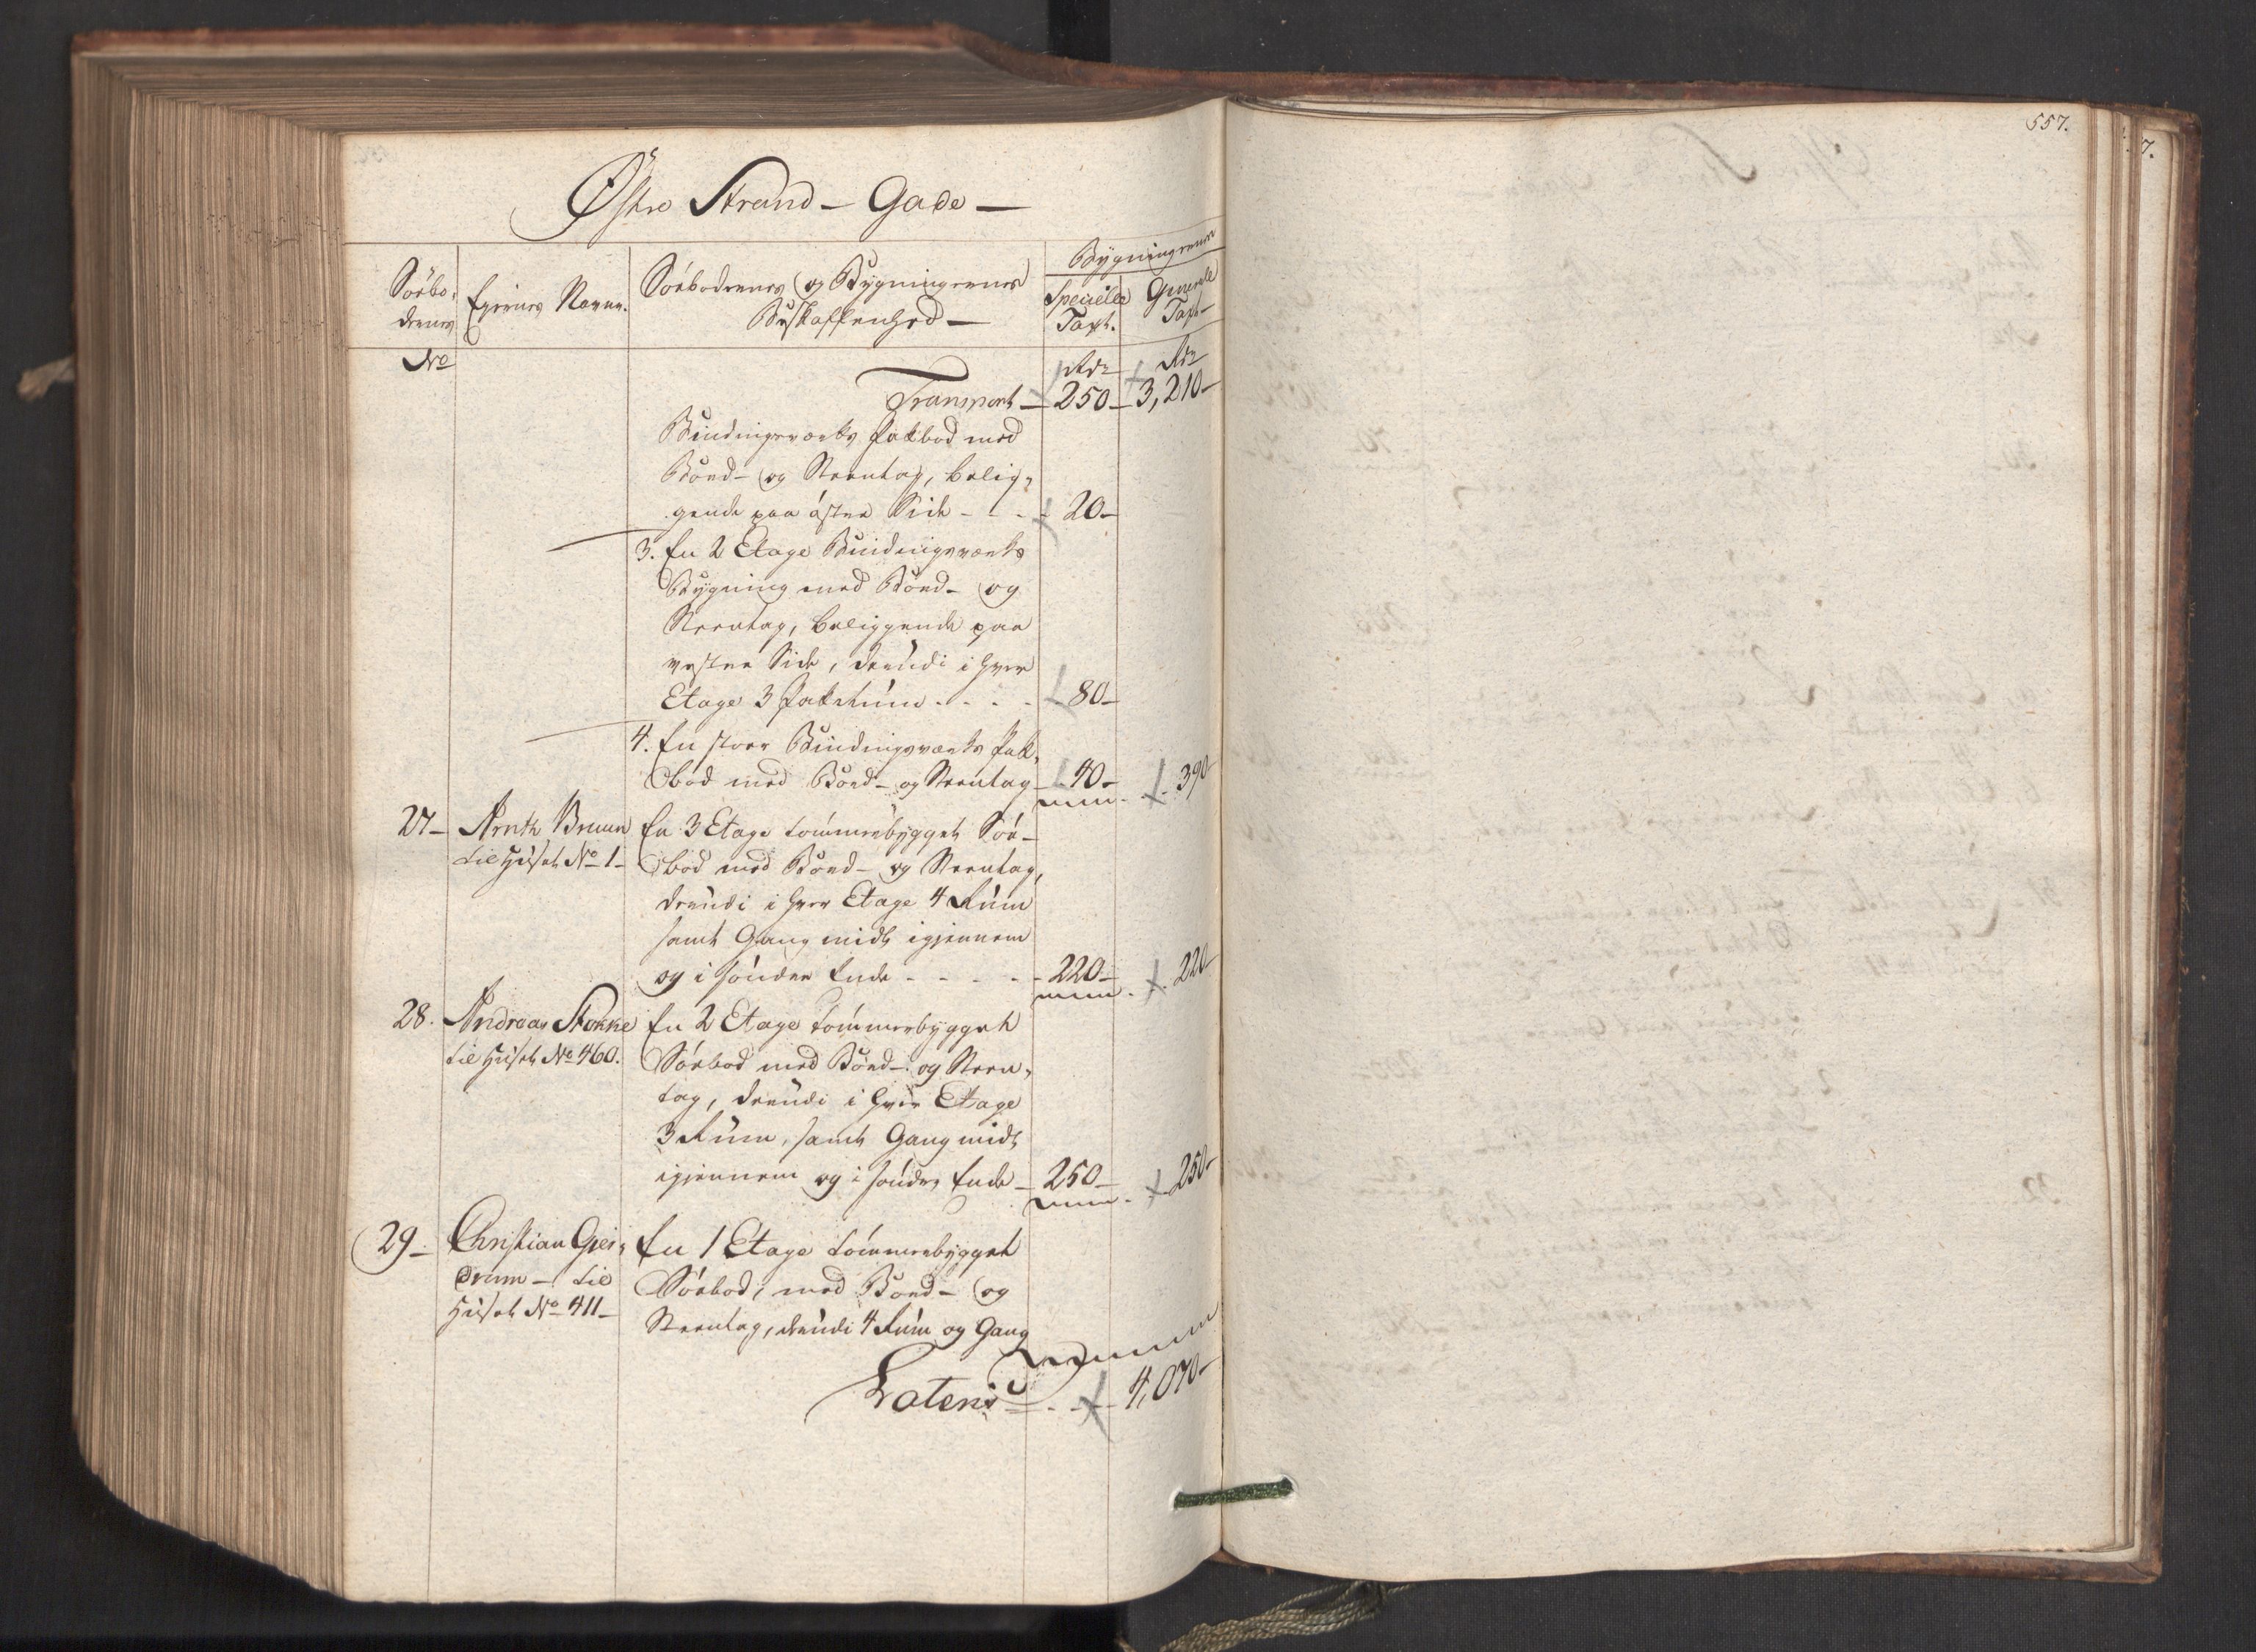 557.
7.
Østre Strand - Gade -
Søebo-
dernes
Eyernes Navne.
Søebodernes og Bygningernes
Beskaffenhed -
Bygningernes
Specielle
Taxt.
Generale
Taxt
No
Rdr Rdr
Transport - 250 - 3,210 -
Bindingsværks Pakbod med
Bord- og Steentag, belig-
gende paa østre Side - - - 20 -
3. En 2 Etage Bindingsværks
Bygning med Bord- og
Steentag, beliggende paa
vestre Side, derudi i hver
Etage 3 Pakrum - - - - 80 -
4. En stor Bindingsværks Pak-
bod med Bord- og Steentag - 40 - 390
27 - Arnth Bruun
til Huset No 1 -
En 3 Etage tømmerbygget Søe-
bod med Bord- og Steentag,
derudi i hver Etage 4 Rum
samt Gang midt igjennem
og i søndre Ende - - - - 220 - 220
28. Andreas Stokke
til Huset No 460.
En 2 Etage tømmerbygget
Søebod med Bord- og Steen-
tag, derudi i hver Etage
3 Rum, samt Gang midt
igjennem og i søndre Ende - 250 - 250 -
29 - Christian Gjer-
drum - til
Huset No 411 -
En 1 Etage tømmerbygget
Søebod, med Bord- og
Steentag, derudi 4 Rum og Gang
Lateris - - 4,070 -